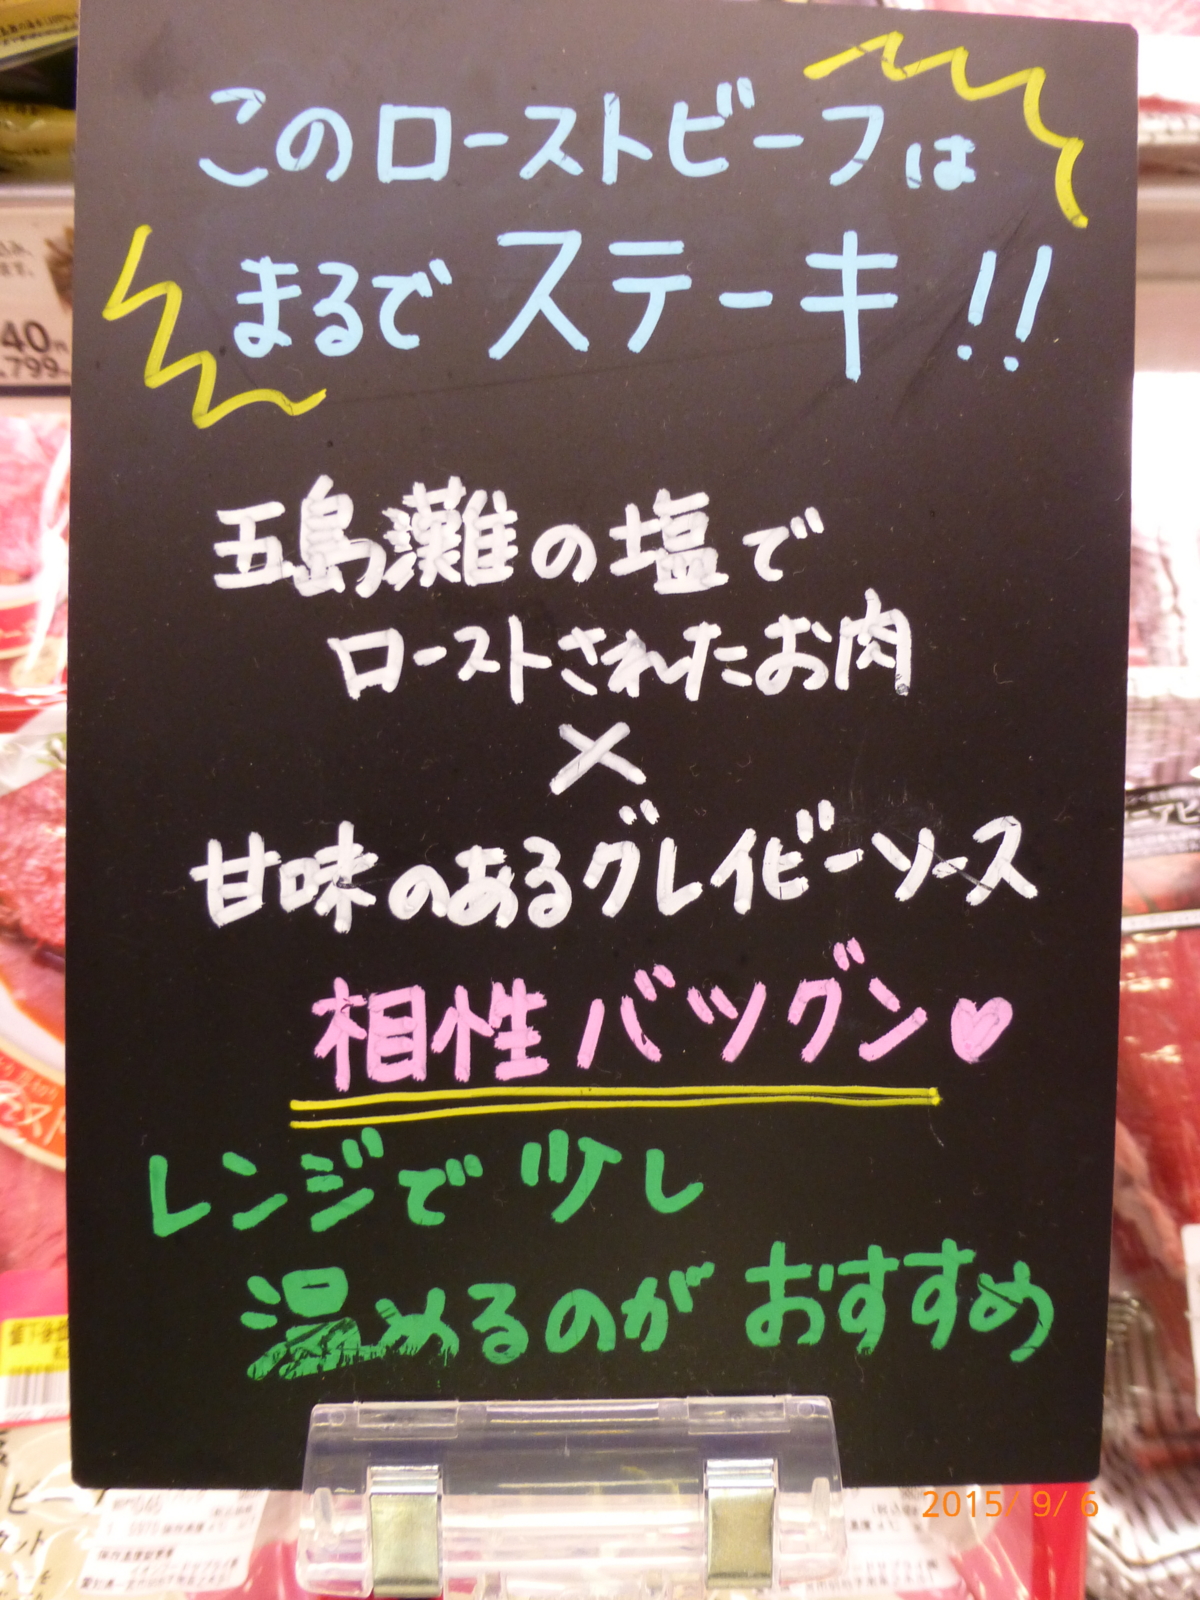 このローストビーフは
まるでステーキ!!
五島灘の塩で
ローストされたお肉
×
甘味のあるグレイビーソース
相性バツグン♥
レンジで少し
温めるのがおすすめ
40円
799
2015/ 9/ 6